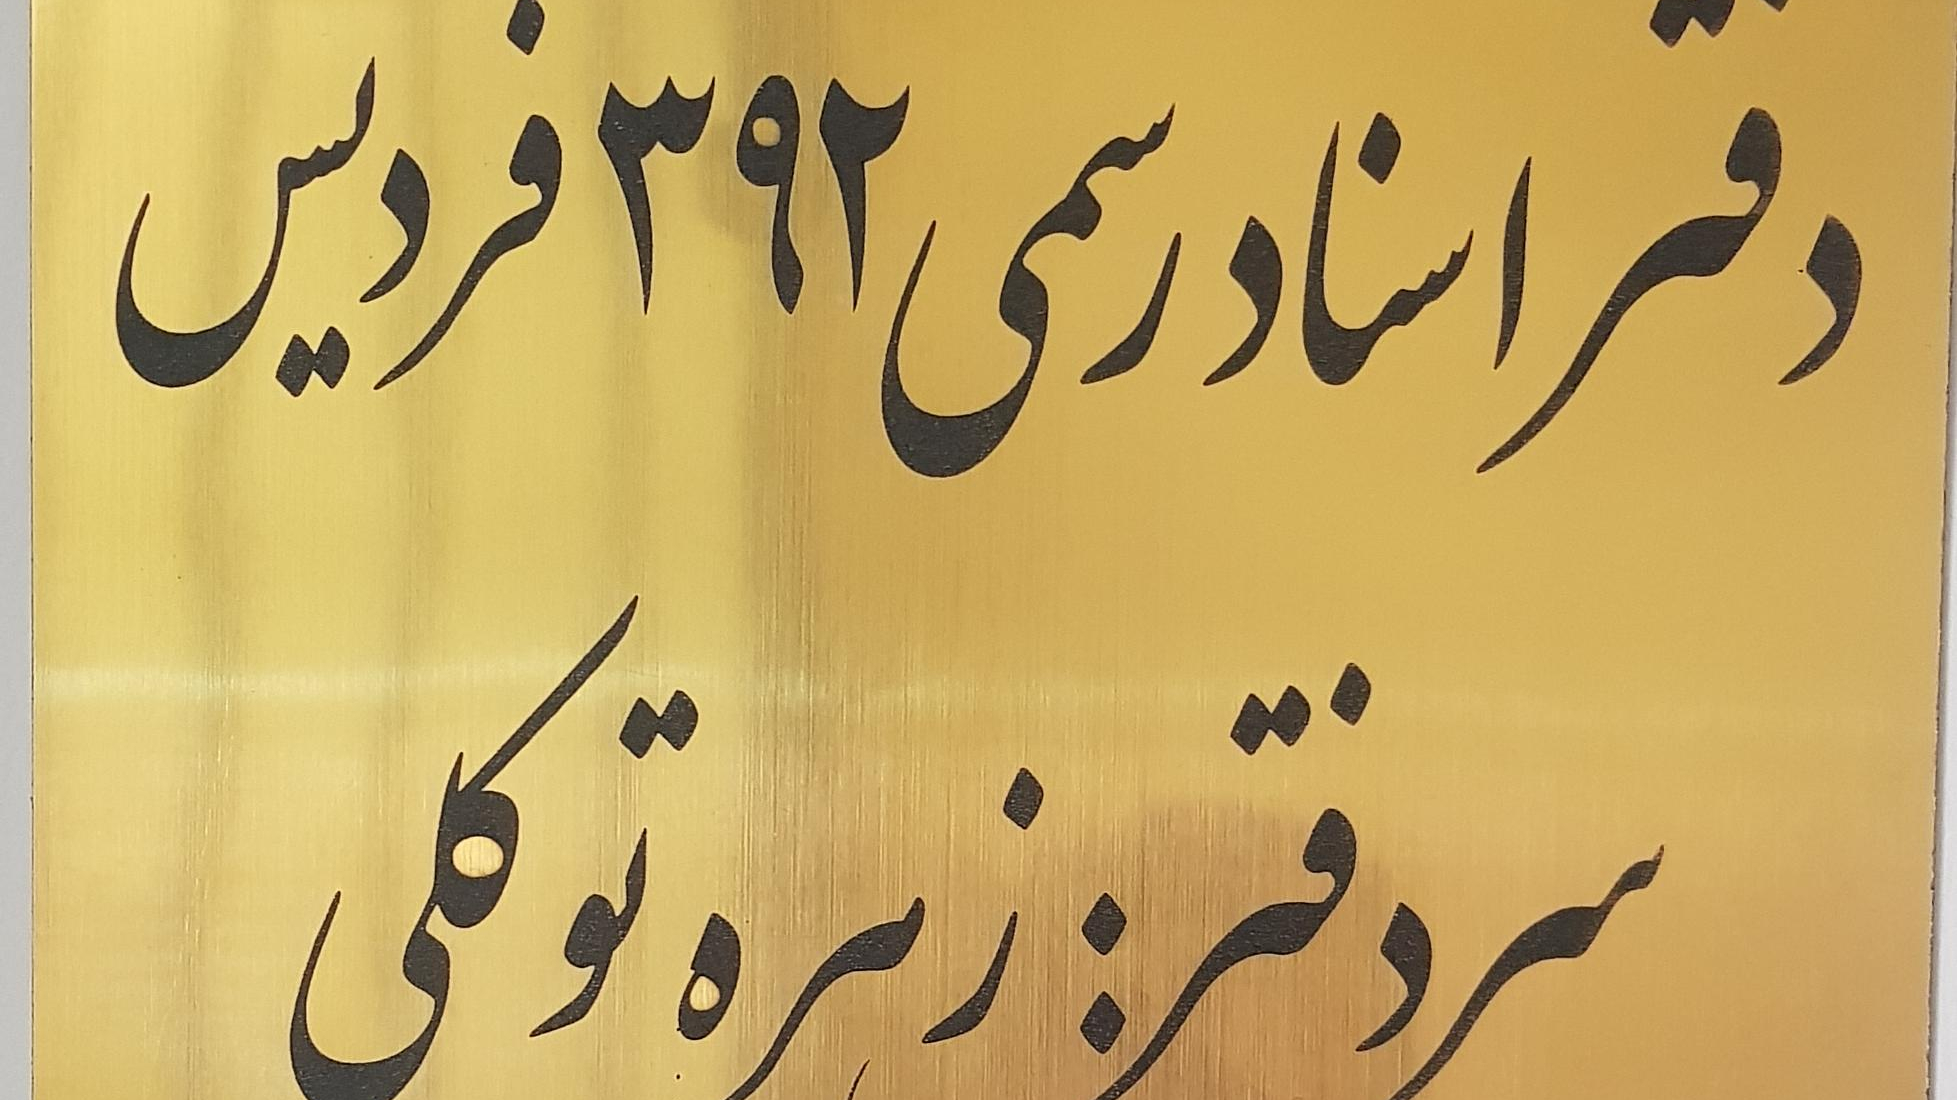 دفتر اسناد رسمی ۳۹۲ فردیس
سردفتر: زهره توکلی